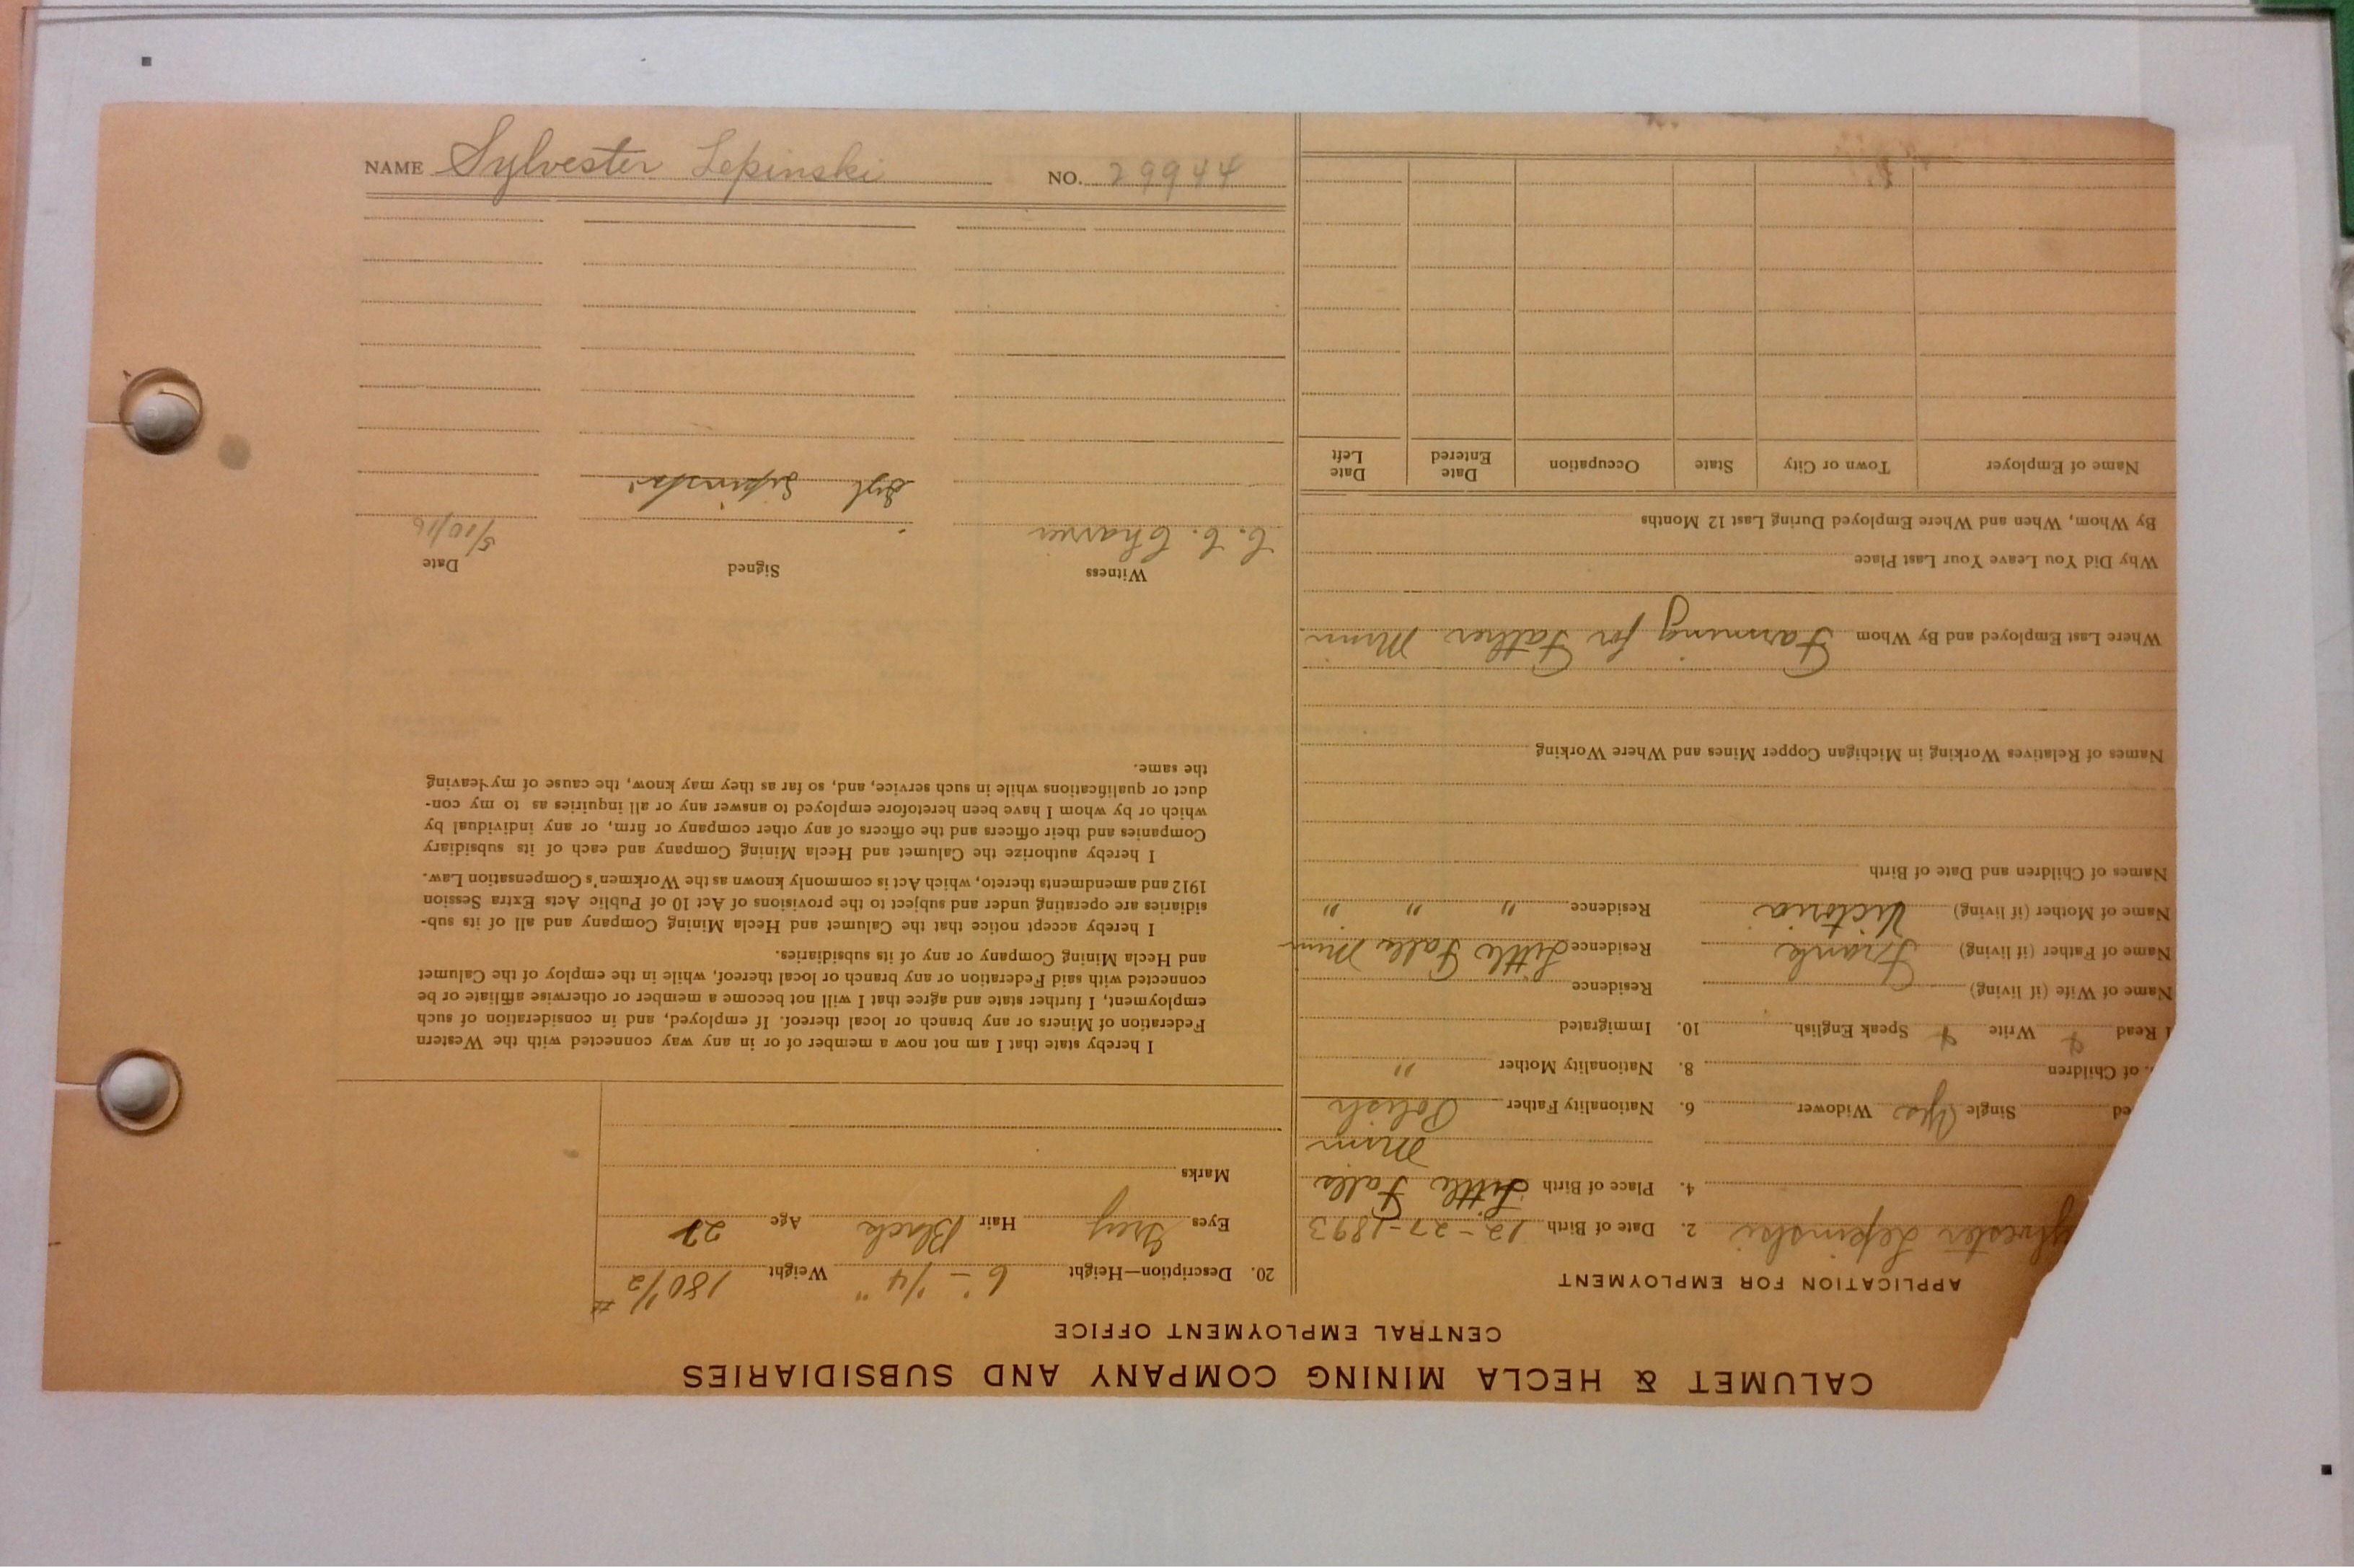 NAME Sylvester Lepinski NO. 29944
CALUMET & HECLA MINING COMPANY AND SUBSIDIARIES
CENTRAL EMPLOYMENT OFFICE
APPLICATION FOR EMPLOYMENT
ylvester Lepinski 2. Date of Birth 12-27-1893
4. Place of Birth Little Falls
Minn
ed Single Yes Widower 6. Nationality Father Polish
. of Children 8. Nationality Mother "
I Read Write Speak English 10. Immigrated
Name of Wife (if living) Residence
Name of Father (if living) Frank Residence Little Falls Minn
Name of Mother (if living) Victoria Residence " " "
Names of Children and Date of Birth
Names of Relatives Working in Michigan Copper Mines and Where Working
Where Last Employed and By Whom Farming for Father Minn
Why Did You Leave Your Last Place
By Whom, When and Where Employed During Last 12 Months
Name of Employer Town or City State Occupation Date Entered Date Left
20. Description—Height 6'-1/4" Weight 180 1/2 #
Eyes Grey Hair Black Age 22
Marks
I hereby state that I am not now a member of or in any way connected with the Western
Federation of Miners or any branch or local thereof. If employed, and in consideration of such
employment, I further state and agree that I will not become a member or otherwise affiliate or be
connected with said Federation or any branch or local thereof, while in the employ of the Calumet
and Hecla Mining Company or any of its subsidiaries.
I hereby accept notice that the Calumet and Hecla Mining Company and all of its sub-
sidiaries are operating under and subject to the provisions of Act 10 of Public Acts Extra Session
1912 and amendments thereto, which Act is commonly known as the Workmen's Compensation Law.
I hereby authorize the Calumet and Hecla Mining Company and each of its subsidiary
Companies and their officers and the officers of any other company or firm, or any individual by
which or by whom I have been heretofore employed to answer any or all inquiries as to my con-
duct or qualifications while in such service, and, so far as they may know, the cause of my leaving
the same.
Witness Signed Date
C. C. 5/10/16
Syl Lepinski